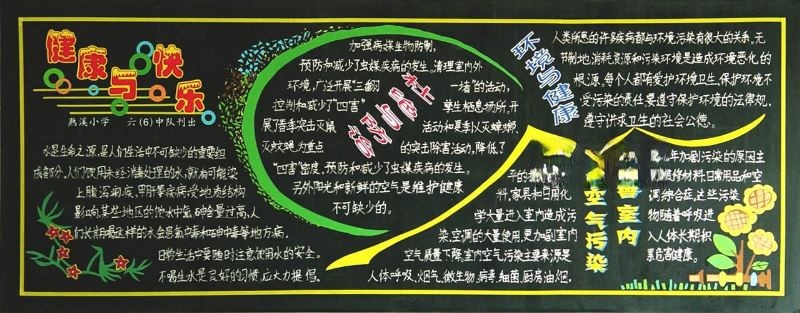 健康与快乐
燕溪小学 六(6)中队刊出
水是生命之源,是人们生活中不可缺少的重要组
成部分。人们饮用未经消毒处理的水,就有可能染
上腹泻、痢疾、甲肝等疾病;受地质结构
影响,某些地区的饮水中氟、砷含量过高,人
们长期喝这样的水会患氟中毒和砷中毒等地方病。
日常生活中要随时注意饮用水的安全。
不喝生水是良好的习惯,应大力提倡。
加强病媒生物防制,
预防和减少了虫媒疾病的发生。清理室内外
环境,广泛开展“三翻一堵”的活动,
控制和减少了“四害”孳生栖息场所,开
展了春季突击灭鼠活动和夏季以灭蟑螂、
灭蚊蝇为重点的突击除害活动,降低了
“四害”密度,预防和减少了虫媒疾病的发生。
另外阳光和新鲜的空气是维护健康
不可缺少的。
环境与健康
人类所患的许多疾病都与环境污染有很大的关系。无
节制地消耗资源和污染环境是造成环境恶化的
根源。每个人都有爱护环境卫生,保护环境不
受污染的责任,要遵守保护环境的法律规,
遵守讲求卫生的社会公德。
室内
空气污染
年加剧污染的原因主
装修材料、日常用品和空
调综合症,这些污染
物随着呼吸进
入人体长期积
累危害健康。
平的
料、家具和日用化
学大量进入室内造成污
染,空调的大量使用,更加剧室内
空气质量下降,室内空气污染主要来源是
人体呼吸、烟气、微生物、病毒、细菌、厨房油烟,